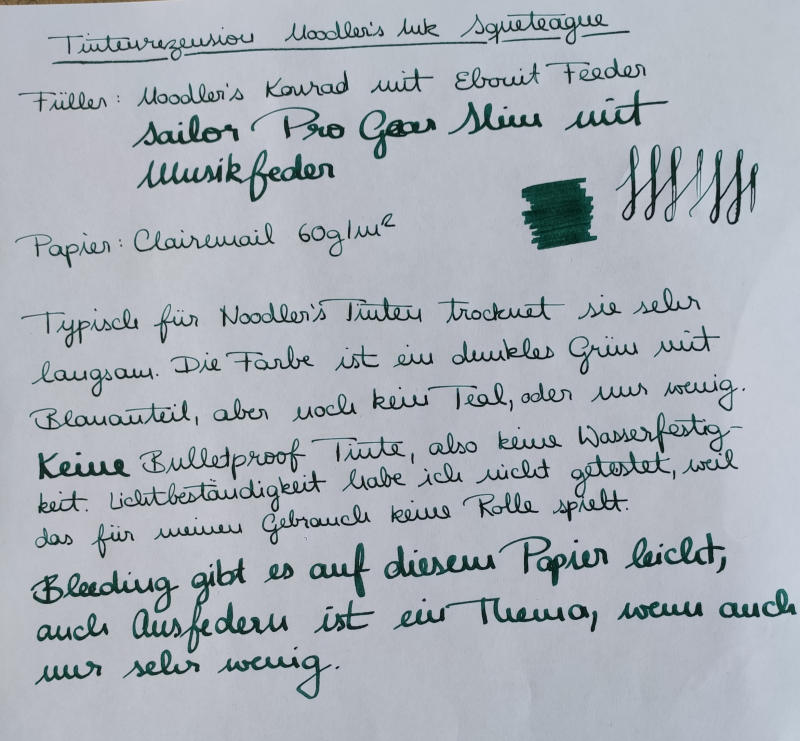 Tintenrezension Noodler's Ink Squeteague
Füller: Noodler's Konrad mit Ebonit Feeder
Sailor Pro Gear Slim mit
Musikfeder
Papier: Clairemail 60g/m²
Typisch für Noodler's Tinten trocknet sie sehr
langsam. Die Farbe ist ein dunkles Grün mit
Blauanteil, aber noch kein Teal, oder nur wenig.
Keine Bulletproof Tinte, also keine Wasserfestig-
keit. Lichtbeständigkeit habe ich nicht getestet, weil
das für meinen Gebrauch keine Rolle spielt.
Bleeding gibt es auf diesem Papier leicht,
auch Ausfedern ist ein Thema, wenn auch
nur sehr wenig.